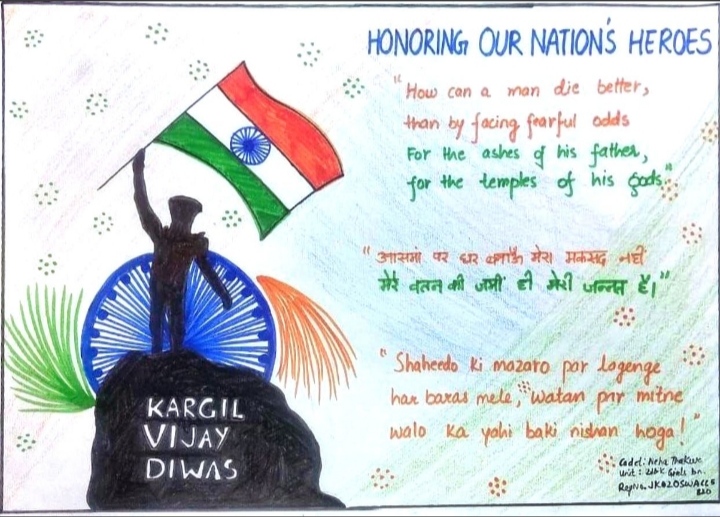 HONORING OUR NATION'S HEROES
"How can a man die better,
than by facing fearful odds
For the ashes of his father,
for the temples of his gods,"
"आसमां पर घर बनाऊँ मेरा मकसद नहीं
मेरे वतन की जमीं ही मेरी जन्नत है।"
"Shaheedo ki mazaro par lagenge
har baras mele, watan par mitne
walo ka yahi baki nishan hoga!"
KARGIL
VIJAY
DIWAS
Cadet: Neha
Unit: Girls bn.
RegNo.